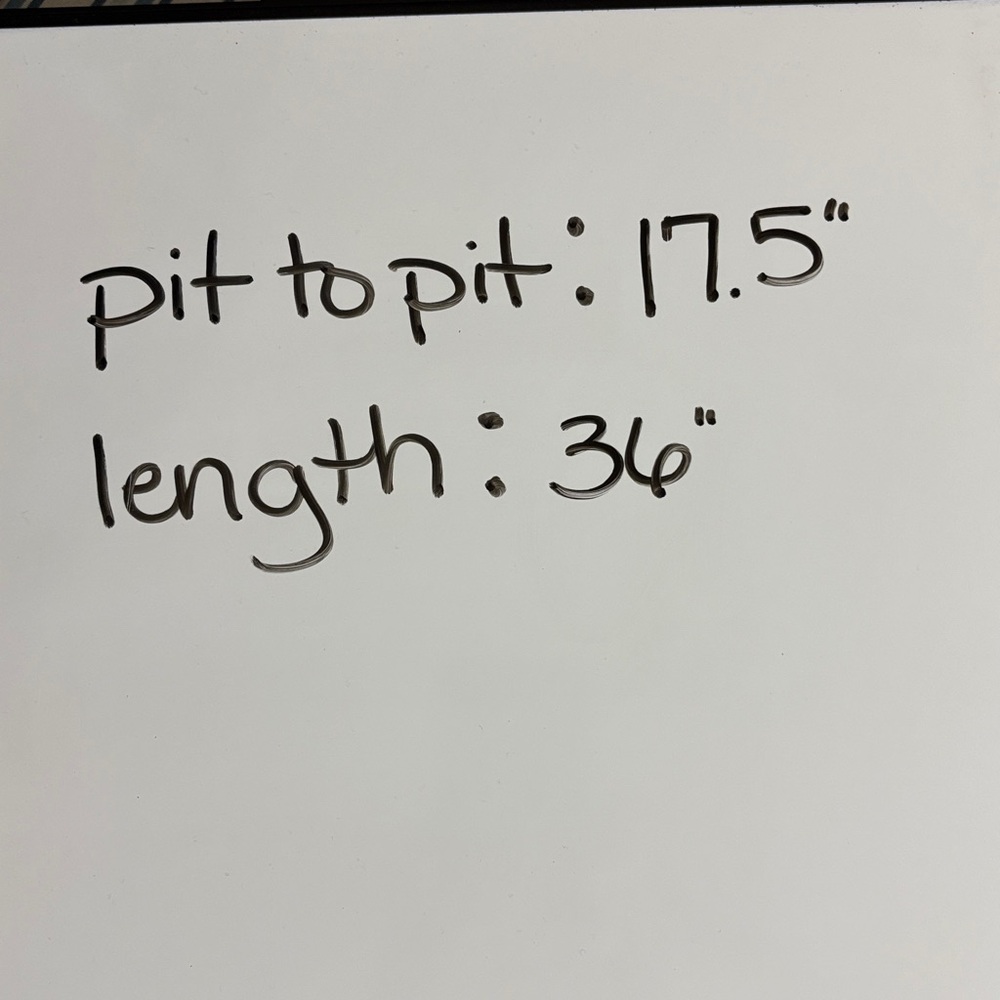 pit to pit: 17.5"
length: 36"